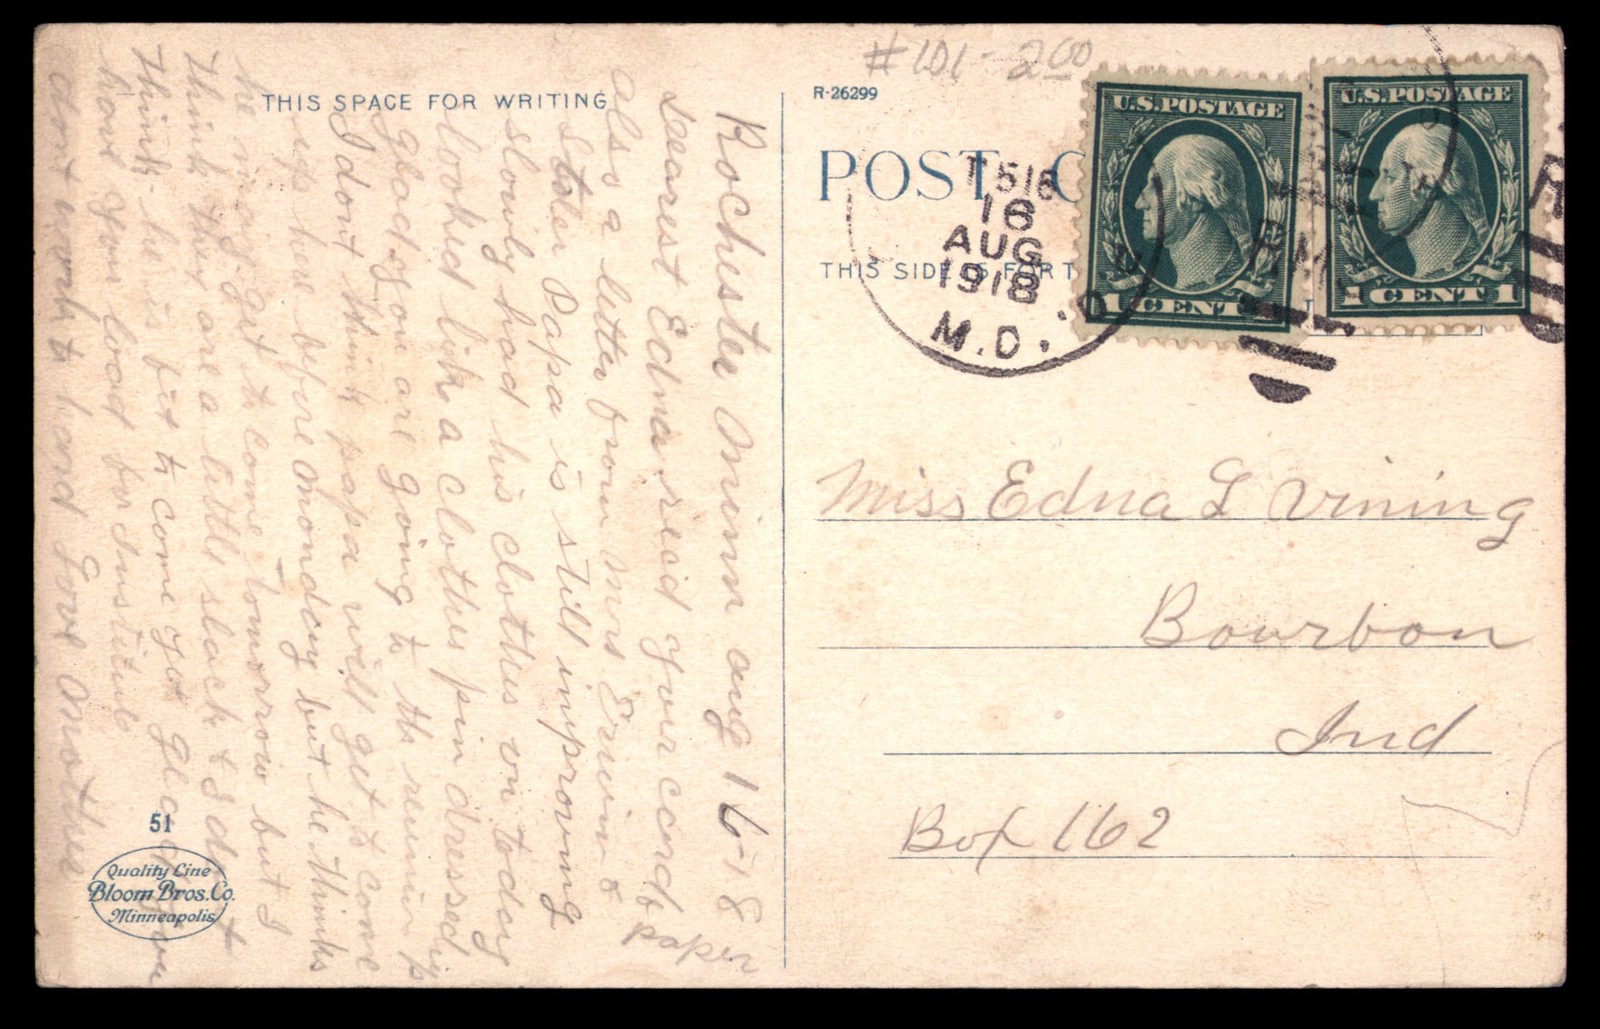 #101-2.00
R-26299
THIS SPACE FOR WRITING
POST C
THIS SIDE IS FOR T
U.S. POSTAGE
1 CENT 1
U.S. POSTAGE
1 CENT 1
T 516
16
AUG
1918
M.D.
Rochester Minn aug 16-18
Dearest Edna recid your card & paper
also a letter from Mrs Erwin &
Papa is still improving
slowly had his clothes on today
looked like a clothes pin dressed up
glad you are going to the
I dont think papa will get to come
before monday but he thinks
he may get to come tomorrow but I
think they are a little slack & I dont
think he is fit to come yet glad you
have your load for Institute
dont work to hard Love Mother
Miss Edna L Vining
Bourbon
Ind
Box 162
51
Quality Line
Bloom Bros. Co.
Minneapolis